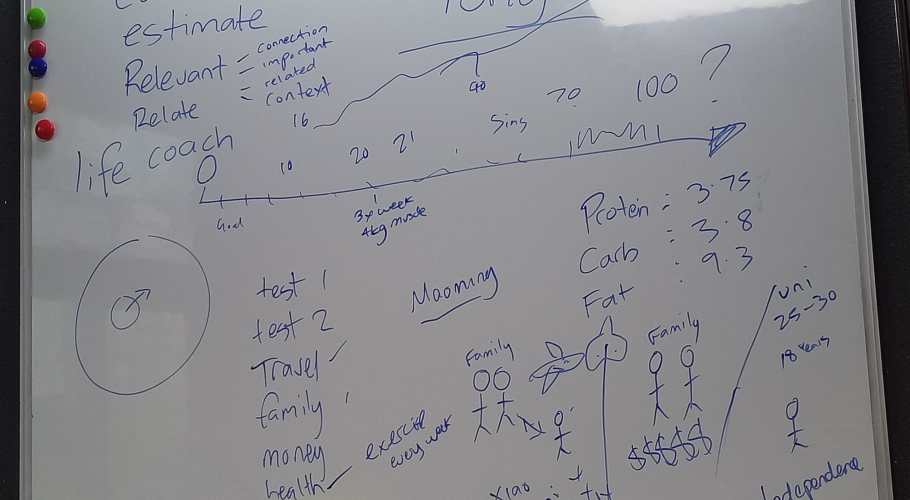 estimate
Relevant = connection
= important
= related
Relate = context
16
40
life coach
0
10
20
21
Sing
70
100 ?
God
3x week
4kg muscle
Protein : 3.75
Carb : 3.8
Fat : 9.3
test 1
test 2
Travel
family
money
health
exercise
every week
Maoming
Family
Xiao
Family
$$$$$
uni
25-30
18 years
Independence